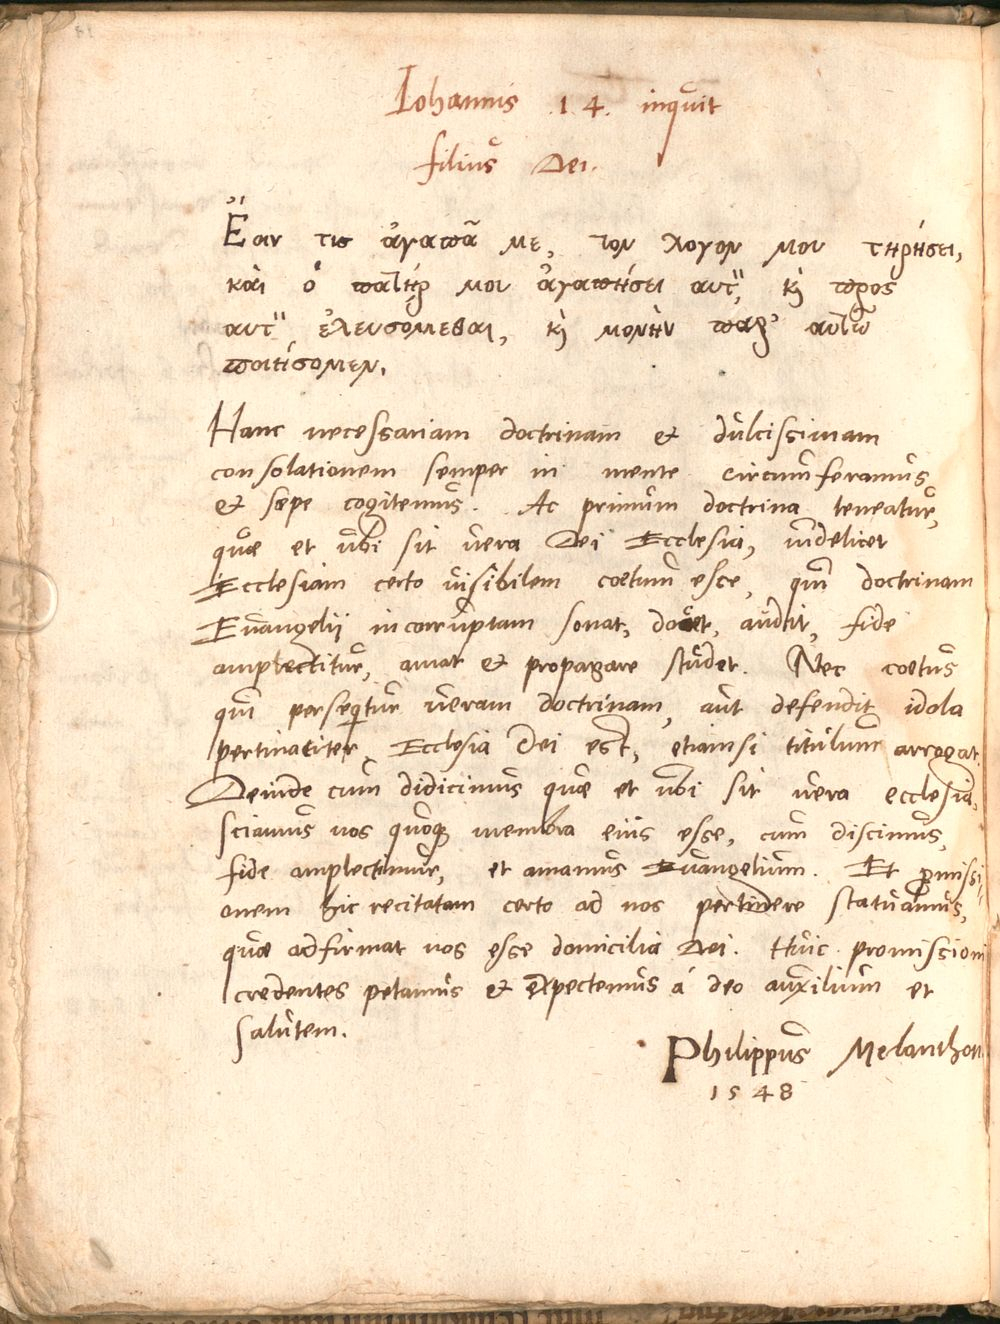 Iohannis .14. inquit
filius Dei.
Ἐάν τισ ἀγαπᾶ με, τον λογον μου τηρήσει,
και ὁ πατὴρ μου ἀγαπήσει αυτ", κ̀ προς
αυτ" ἐλευσομεθαι, κ̀ μονὴν παρ' αυτῶ
ποιήσομεν.
Hanc necessariam doctrinam et dulcissimam
consolationem semper in mente circumferamus
et sæpe cogitemus. Ac primum doctrina teneatur,
quæ et ubi sit vera Dei Ecclesia, videlicet
Ecclesiam certo visibilem coetum esse, qui doctrinam
Euangelii incorruptam sonat, docet, audit, fide
amplectitur, amat et propagare studet. Nec coetus
qui perseqitur veram doctrinam, aut defendit idola
pertinaciter, Ecclesia Dei est, etiamsi titulum arrogat.
Deinde cum didicimus quæ et ubi sit vera ecclesia,
sciamus nos quoq; membra eius esse, cum discimus,
fide amplectimur, et amamus Euangelium. Et p̱missi-
onem hic recitatam certo ad nos pertinere statuamus,
quæ adfirmat nos esse domicilia Dei. Huic promissioni
credentes petamus et expectemus á deo auxilium et
salutem.
Philippus Melanthon
1548